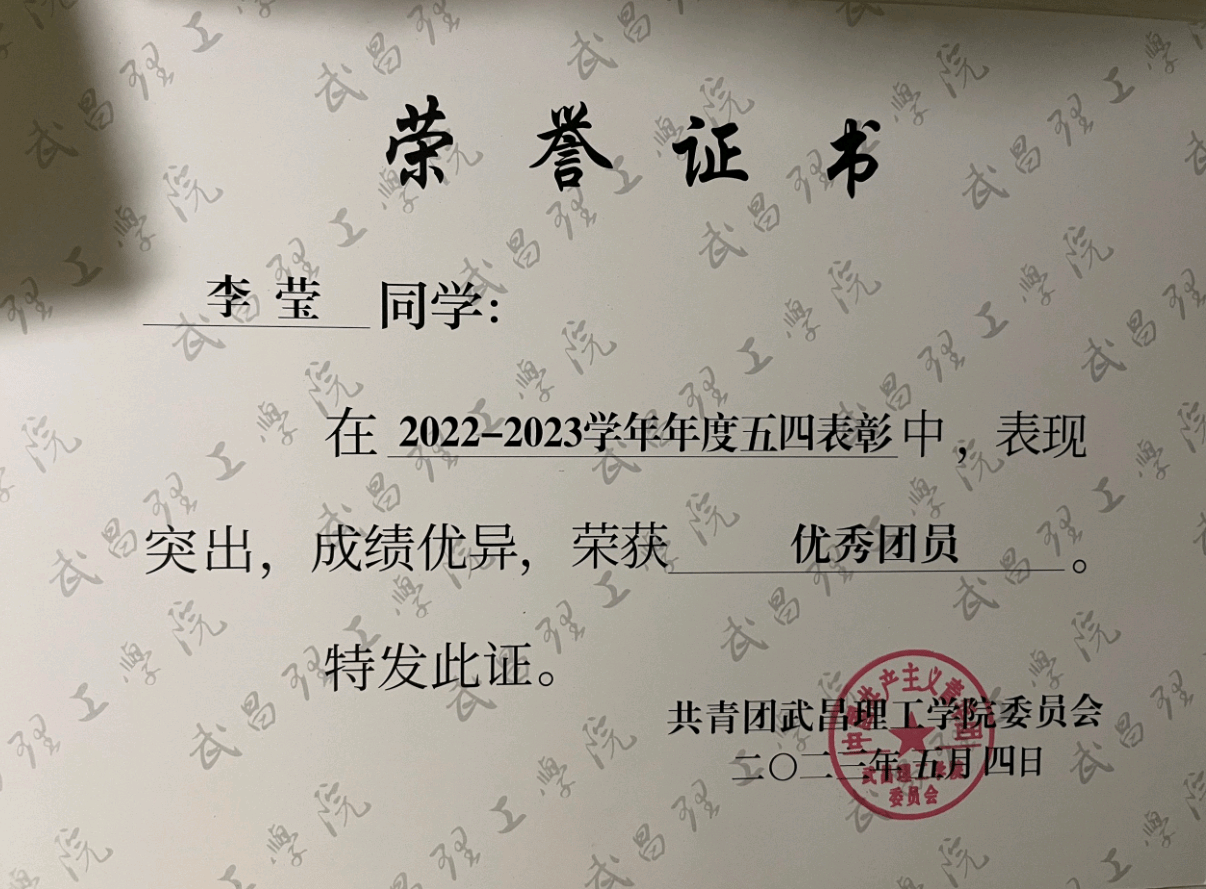 荣誉证书
李莹 同学：
在 2022-2023学年年度五四表彰 中，表现
突出，成绩优异，荣获 优秀团员 。
特发此证。
共青团武昌理工学院委员会
二〇二三年五月四日
中国共产主义青年团
武昌理工学院
委员会
武昌理工学院